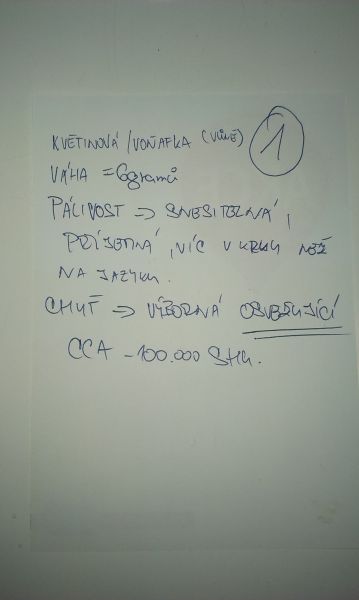 KVĚTINOVÁ / VOŇAFKA (VŮNĚ) 1
VÁHA = 6gramů
PÁLIVOST => SNESITELNÁ,
PŘÍJEMNÁ, VÍC V KRKU NEŽ
NA JAZYKU.
CHUŤ => VÝBORNÁ OSVĚŽUJÍCÍ
CCA - 100.000 SHU.